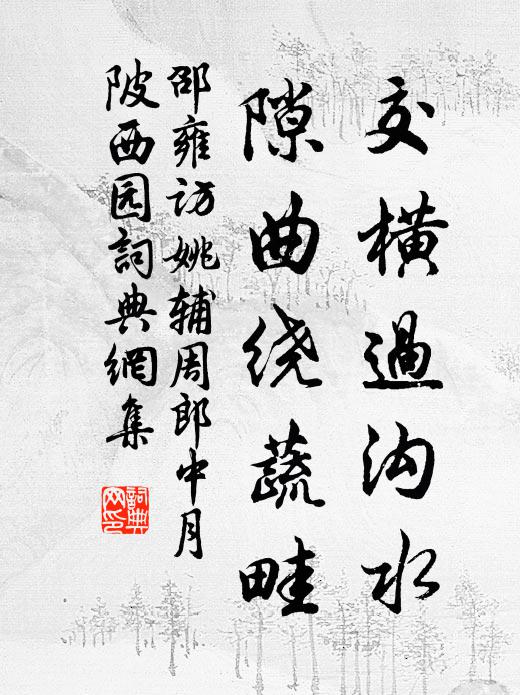 交横過沟水
隙曲绕蔬畦
邵雍访姚辅周郎中月
陂西园詞典網集
詞典
网印